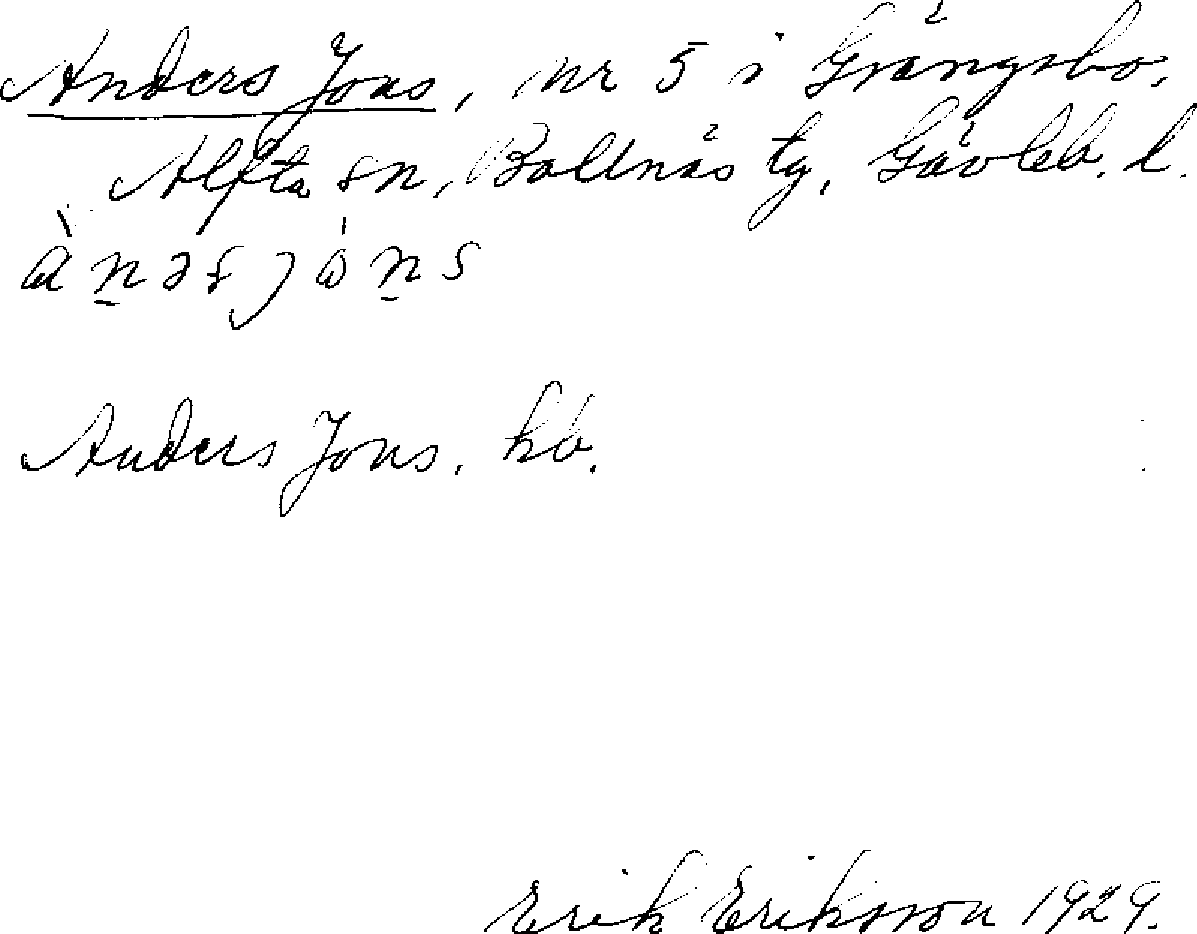 Anders Jons, nr 5 i Grängsbo,
Alfta sn, Bollnäs tg, Gävleb. l.
Anders Jons. hb.
Erik Eriksson 1929.